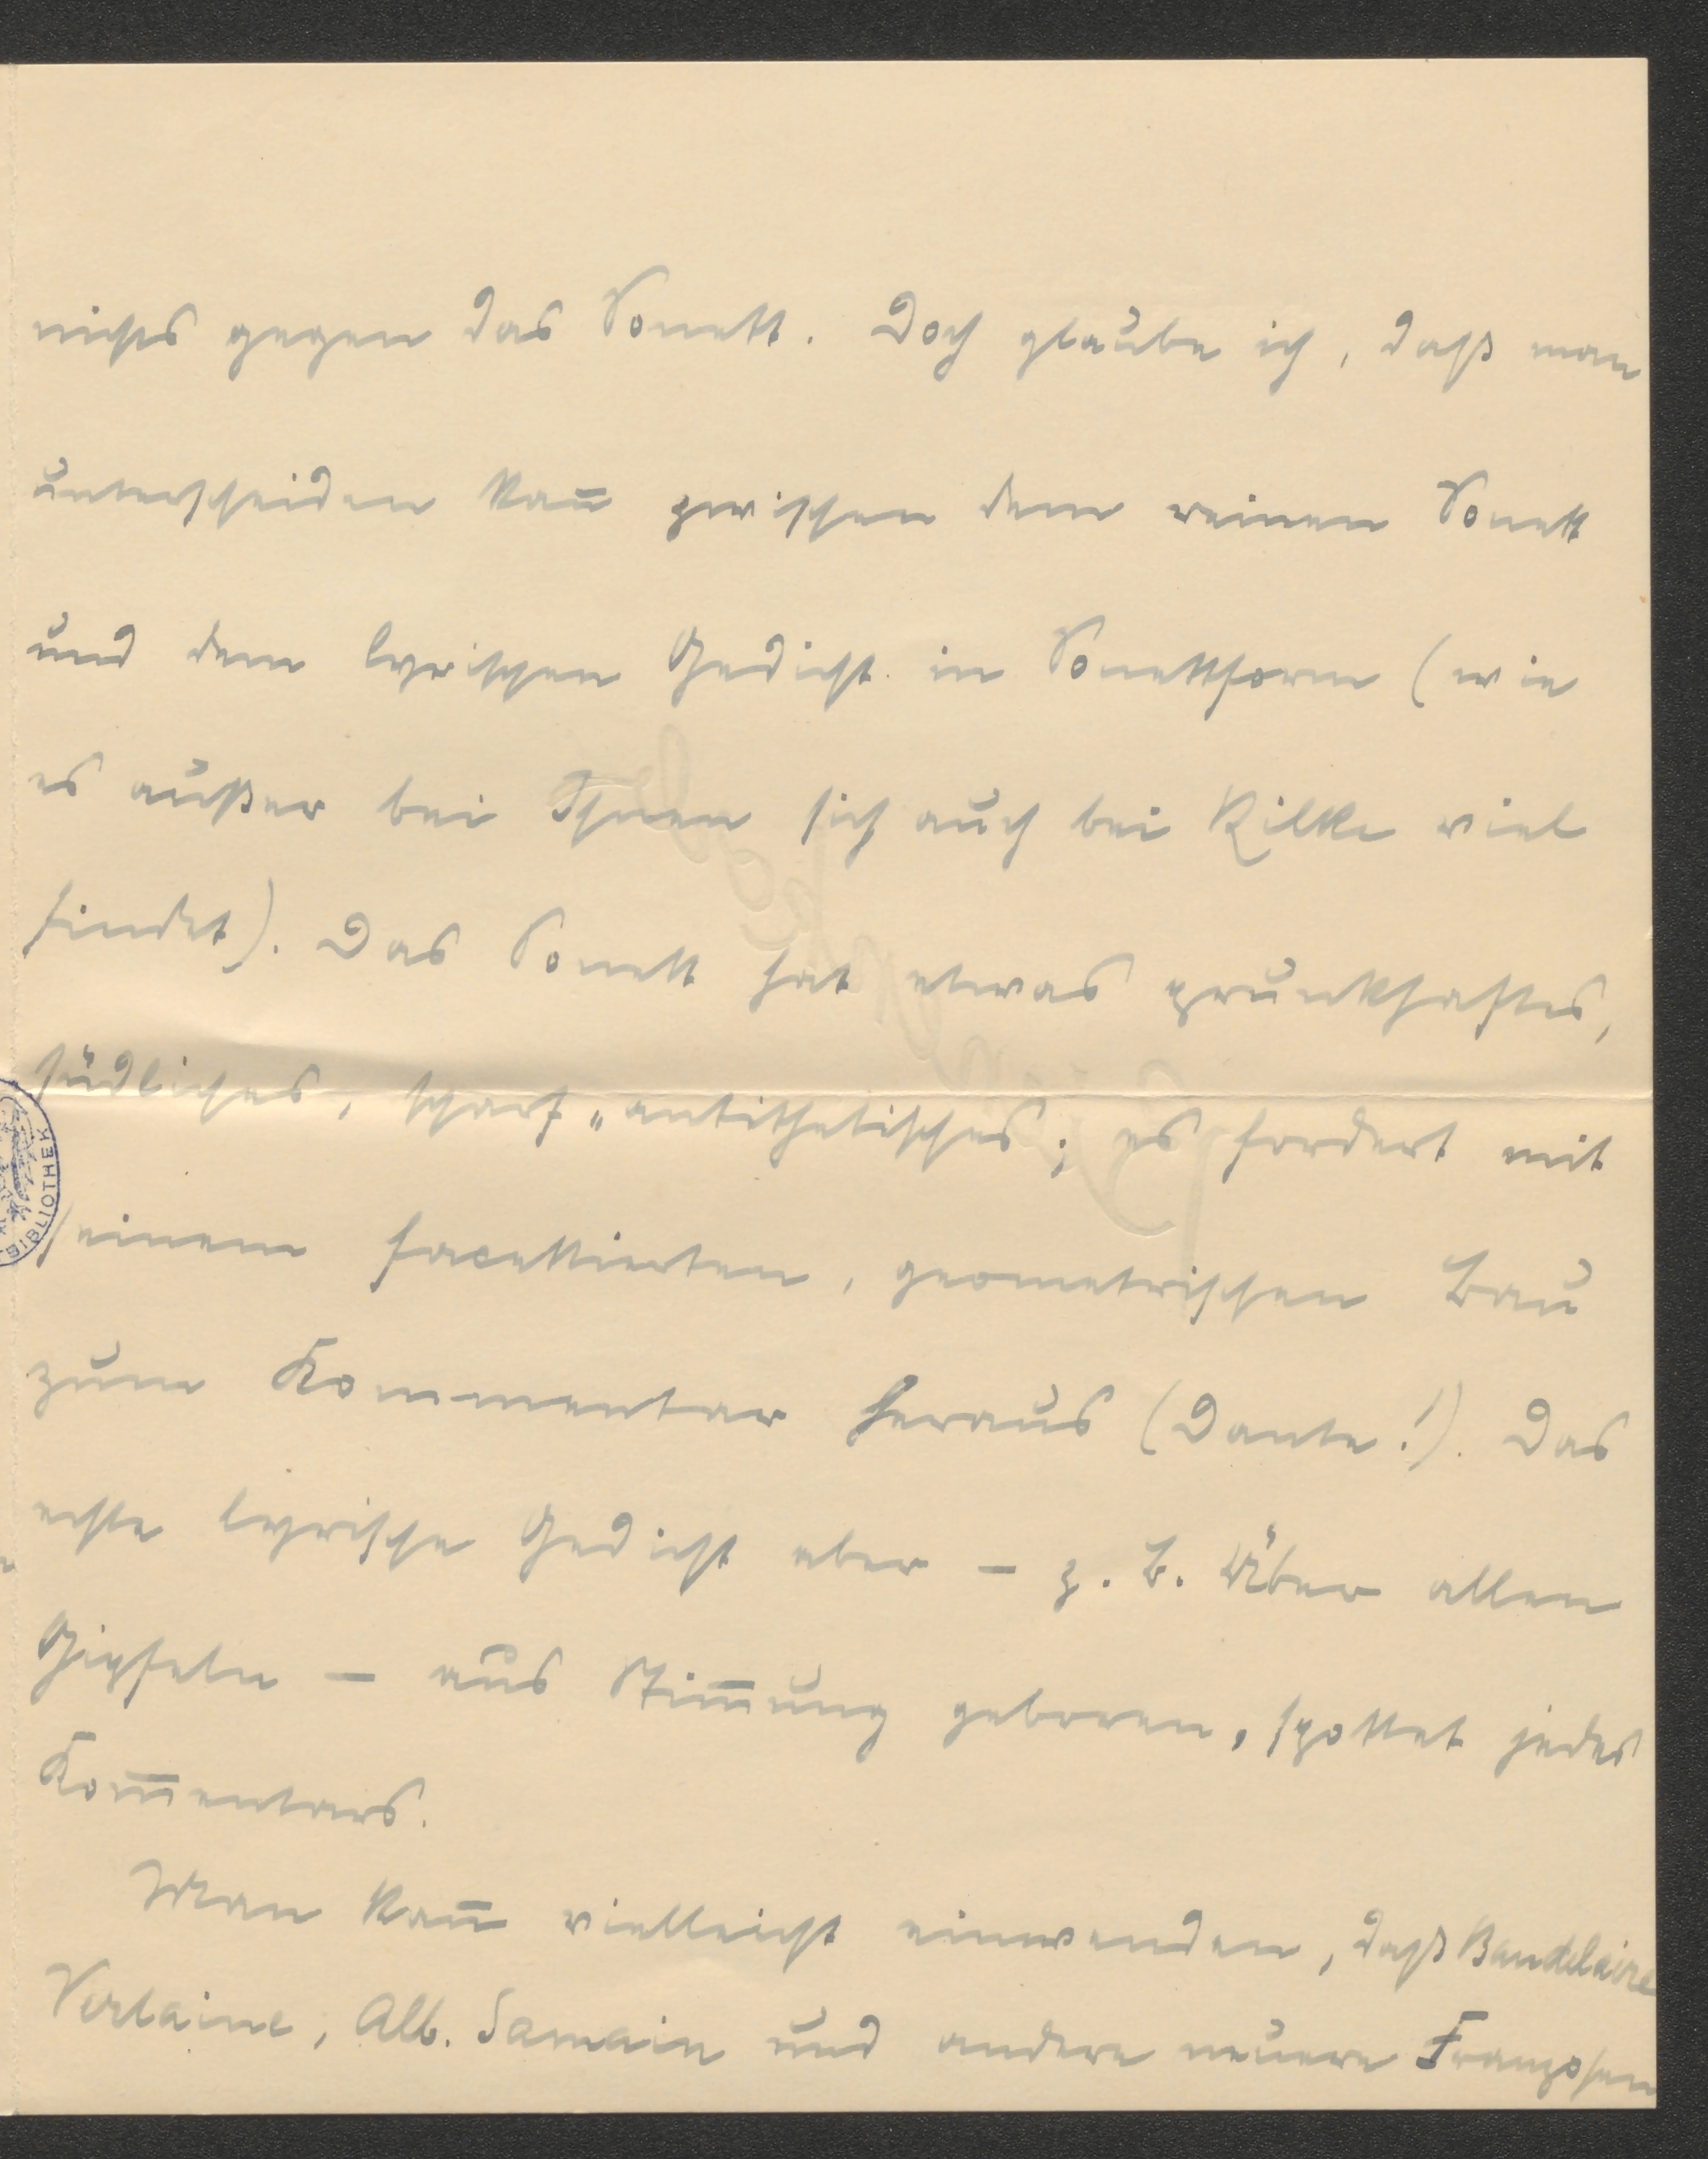 nichts gegen das Sonett. Doch glaube ich, daß man
unterscheiden kan̄ zwischen dem reinen Sonett
und dem lyrischen Gedicht in Sonettform (wie
es außer bei Ihnen sich auch bei Rilke viel
findet). Das Sonett hat etwas prunkhaftes,
südliches, scharf „antithetisches; es fordert mit
seinem facettierten, geometrischen Bau
zum Kommentar heraus (Dante!). Das
echte lyrische Gedicht aber – z. B. Über allen
Gipfeln – aus Stim̄ung geboren, spottet jedes
Kom̄entars.
Man kan̄ vielleicht einwenden, daß Baudelaire
Verlaine, Alb. Samain und andere neuere Franzosen
BIBLIOTHEK